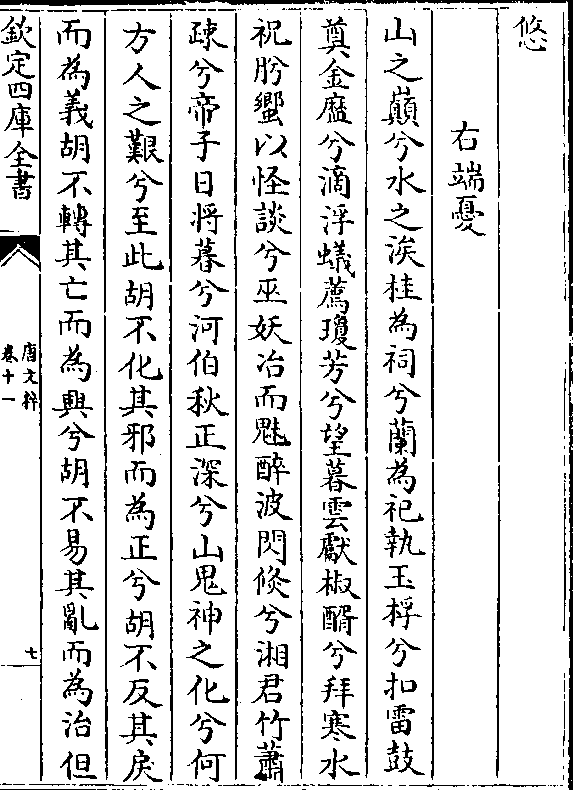 悠
右端憂
山之巔兮水之涘桂為祠兮蘭為祀執玉桴兮扣雷鼓
奠金罍兮滴浮蟻薦瓊芳兮望暮雲獻椒醑兮拜寒水
祝肹蠁以怪談兮巫妖冶而魅醉波閃倐兮湘君竹蕭
疎兮帝子日將暮兮河伯秋正深兮山鬼神之化兮何
方人之艱兮至此胡不化其邪而為正兮胡不反其戾
而為義胡不轉其亡而為興兮胡不易其亂而為治但
欽定四庫全書
唐文粹
卷十一
七